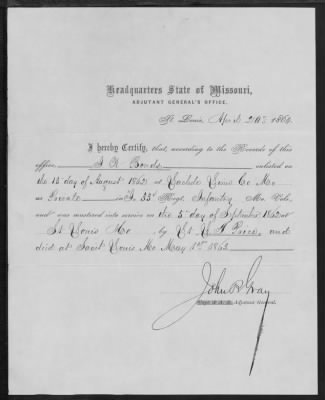 Headquarters State of Missouri,
ADJUTANT GENERAL'S OFFICE,
St. Louis, 186
I hereby Certify, that, according to the Records of this
office, Bonds enlisted on
the 13 day of August 1862 at Louis Co Mo
as Private in 33d Regt Infantry Mo. Vols.
and was mustered into service on the 5 day of September 1862 at
St Louis Mo by Lt and
died at Saint Louis Mo May 1st 1863
John B Gray
Adjutant General.